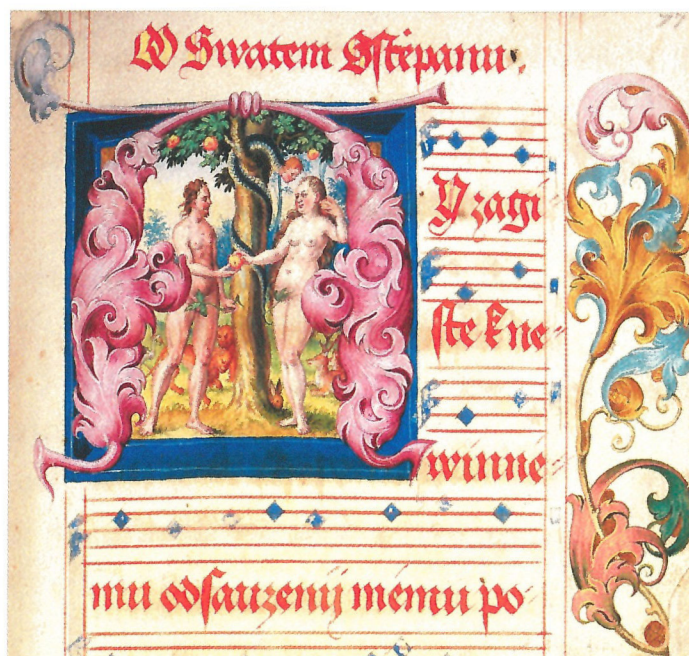 O Swatem Sſtěpanu.
77
A Yzagi
ſte k ne=
winne=
mu odſauzenij memu po=